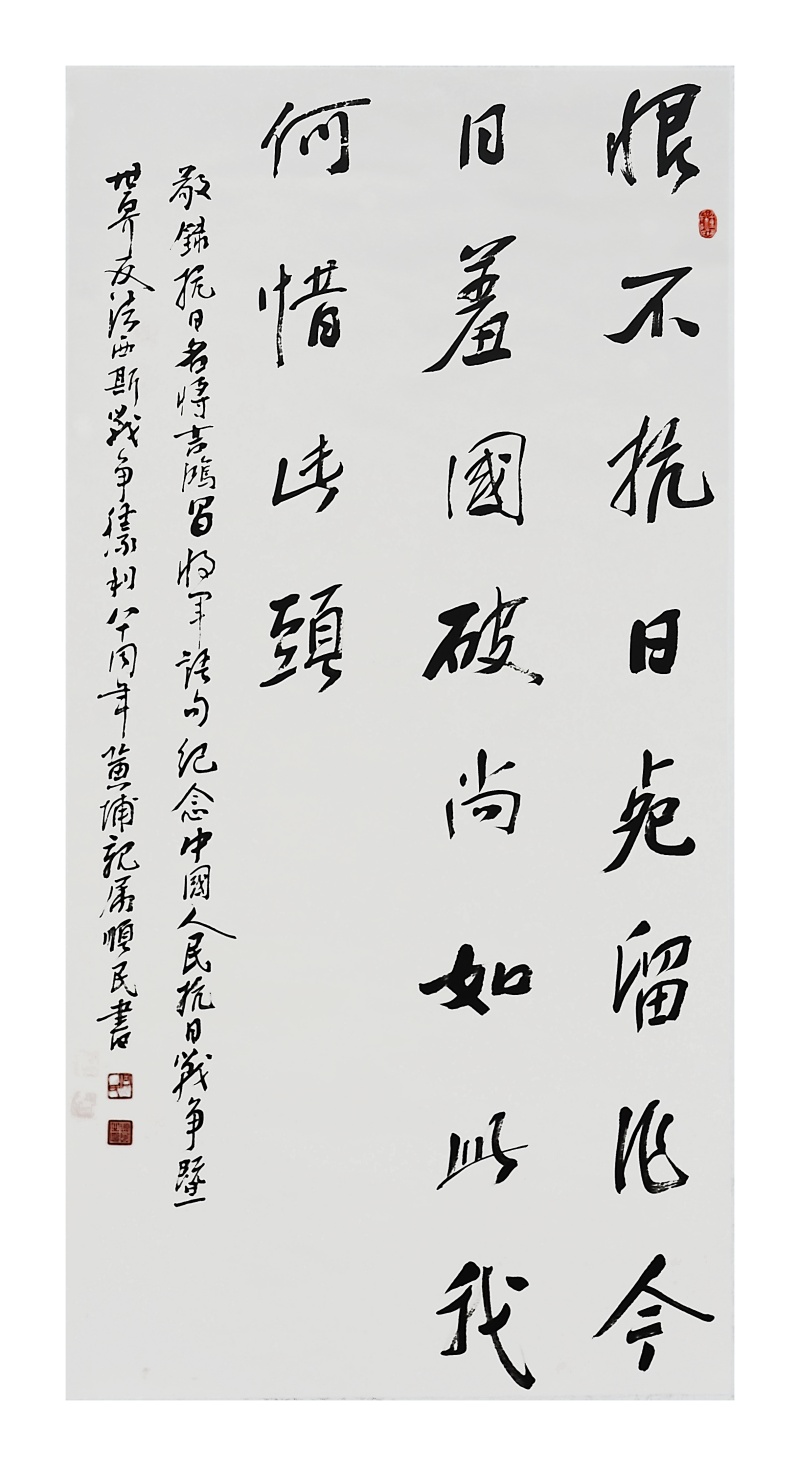 恨不抗日死留作今
日羞國破尚如此我
何惜此頭
敬錄抗日名將吉鴻昌將軍語句紀念中國人民抗日戰爭暨
世界反法西斯戰爭勝利八十周年黄埔親属順民書